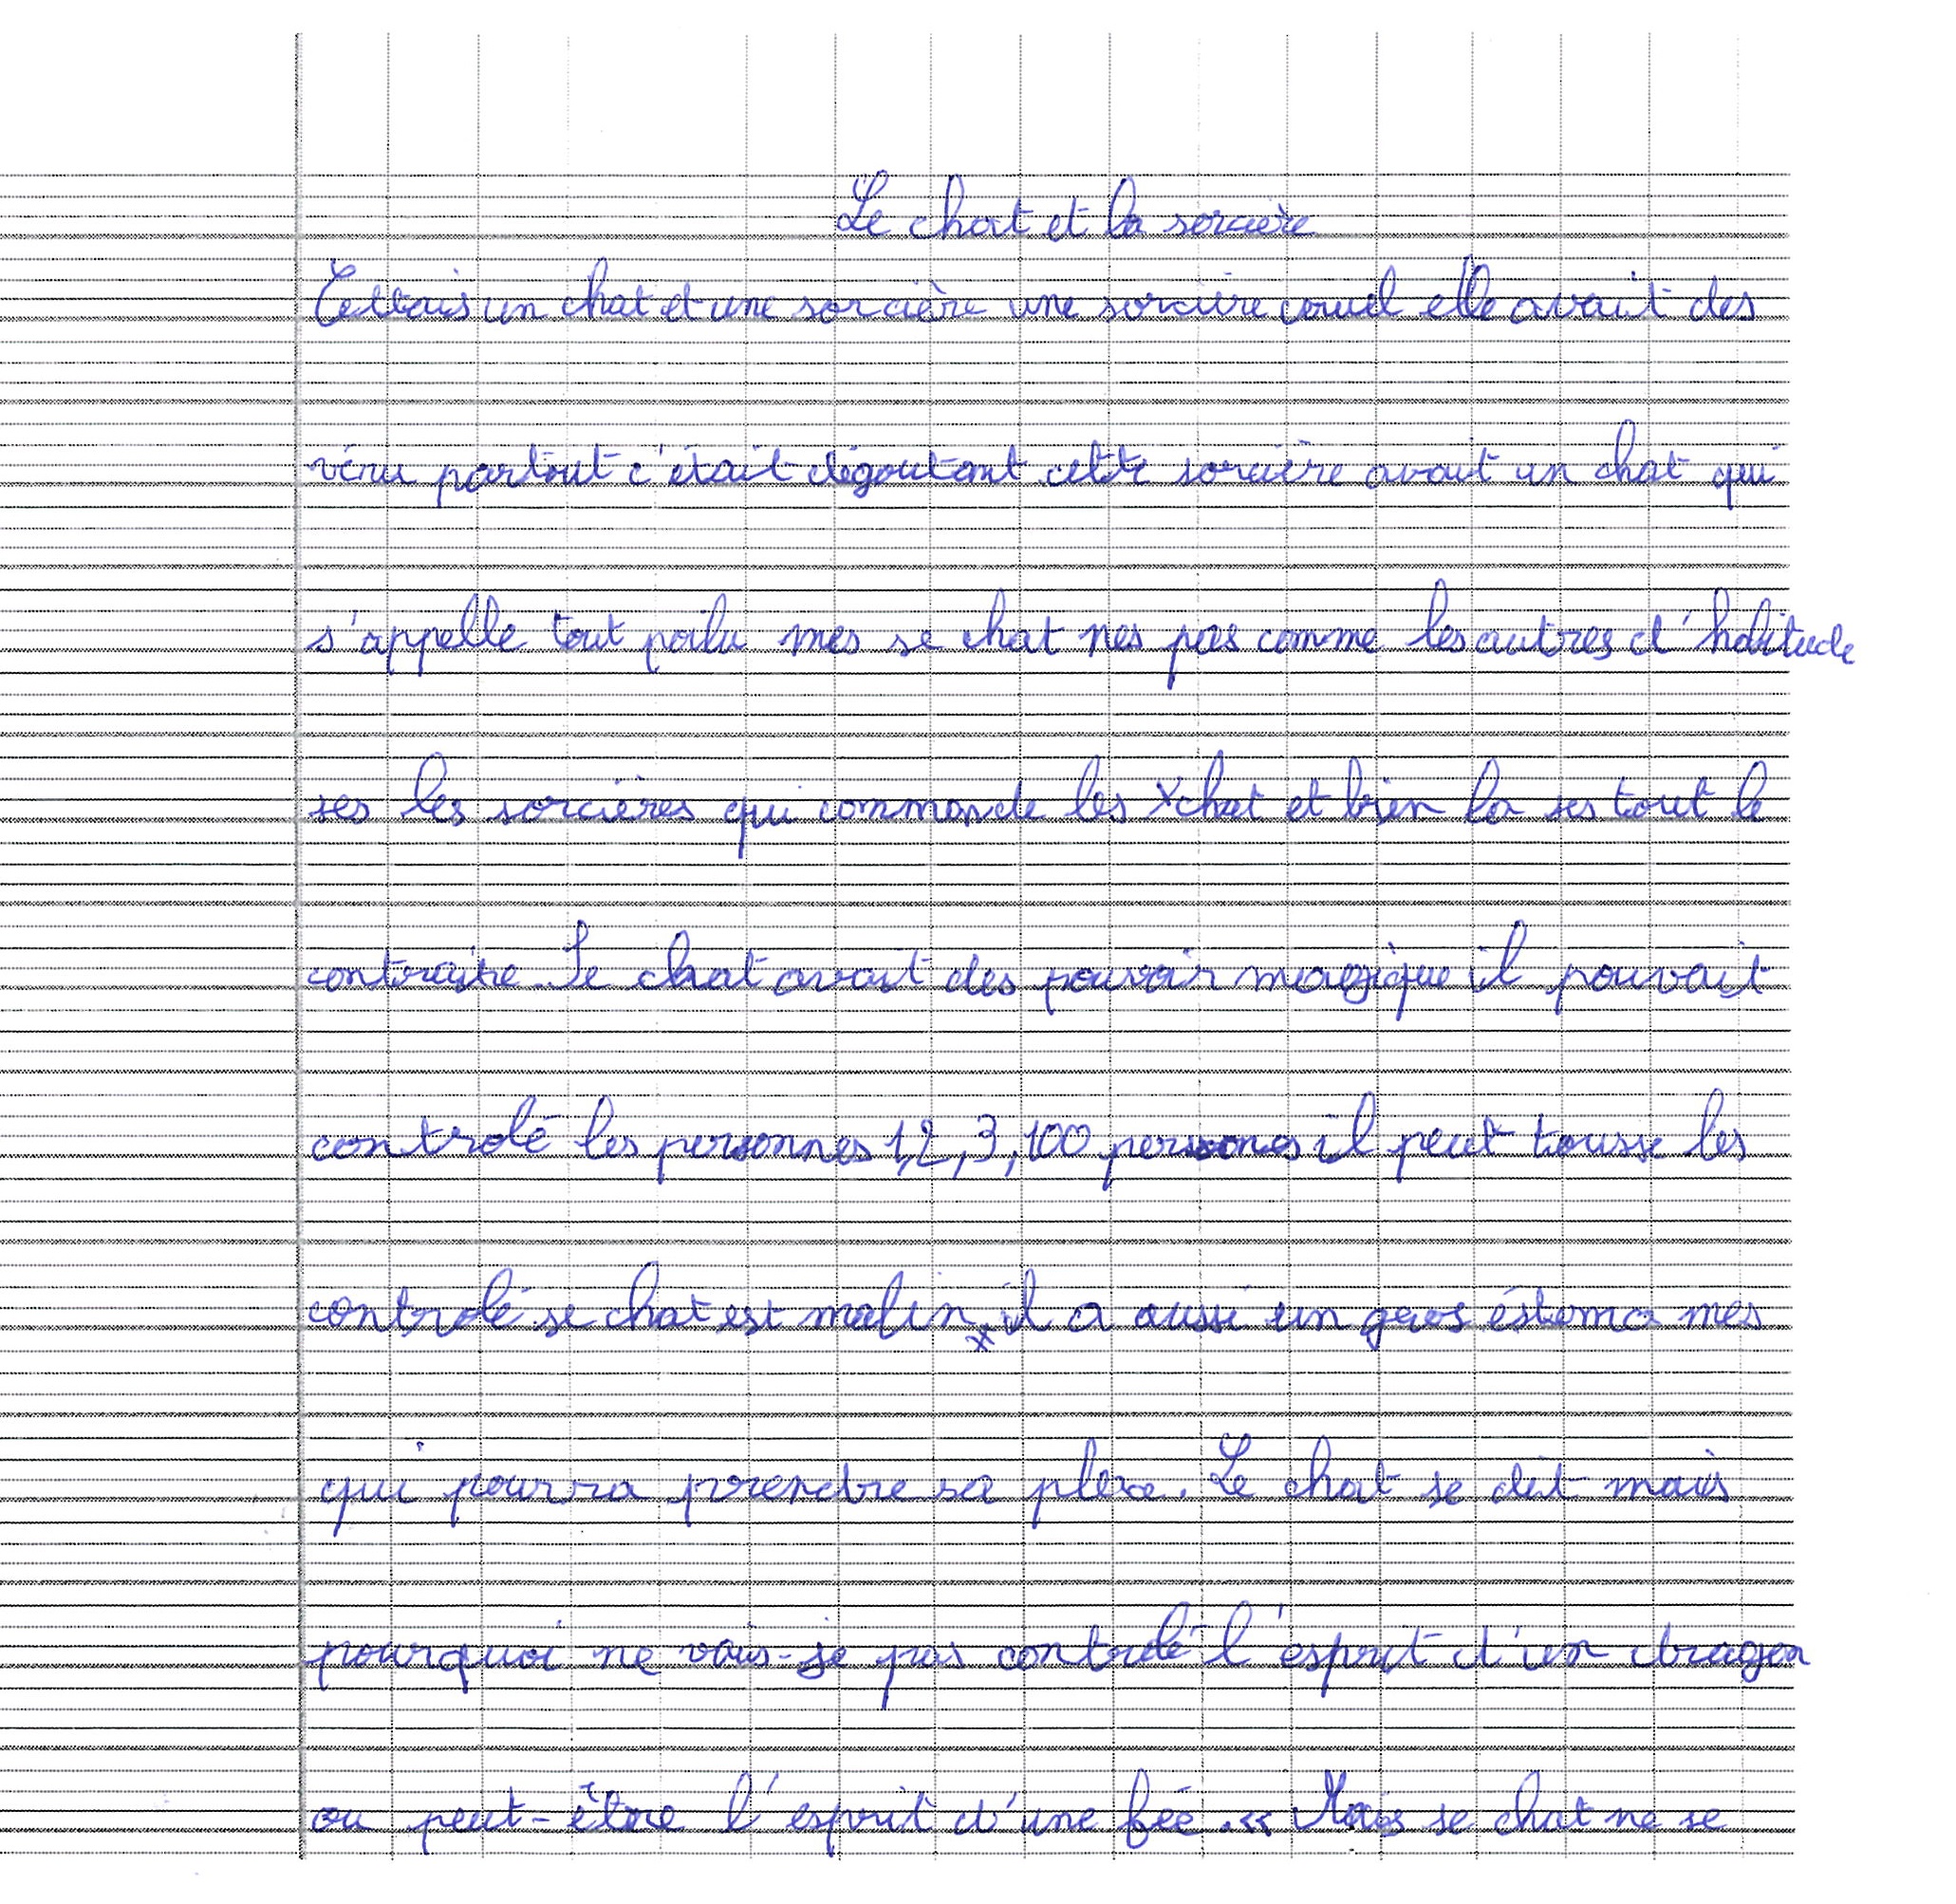 Le chat et la sorcière
C'ettais un chat et une sorcière une sorcière cruel elle avait des
véru partout c'était dégoutant cette sorcière avait un chat qui
s'appelle tout poilu mes se chat nes pas comme les autres d'habitude
ses les sorcières qui commande les chat et bien la ses tout le
contraire. Le chat avait des pouvoir magique il pouvait
controlé les personnes 1,2,3,100 personnes il peut tousse les
controlé se chat est malin, il a aussi un gros éstoma mes
qui pourra prendre sa place. Le chat se dit mais
pourquoi ne vais-je pas controlé l'esprit d'un dragon
ou peut-être l'esprit d'une fée. « Mais se chat ne se